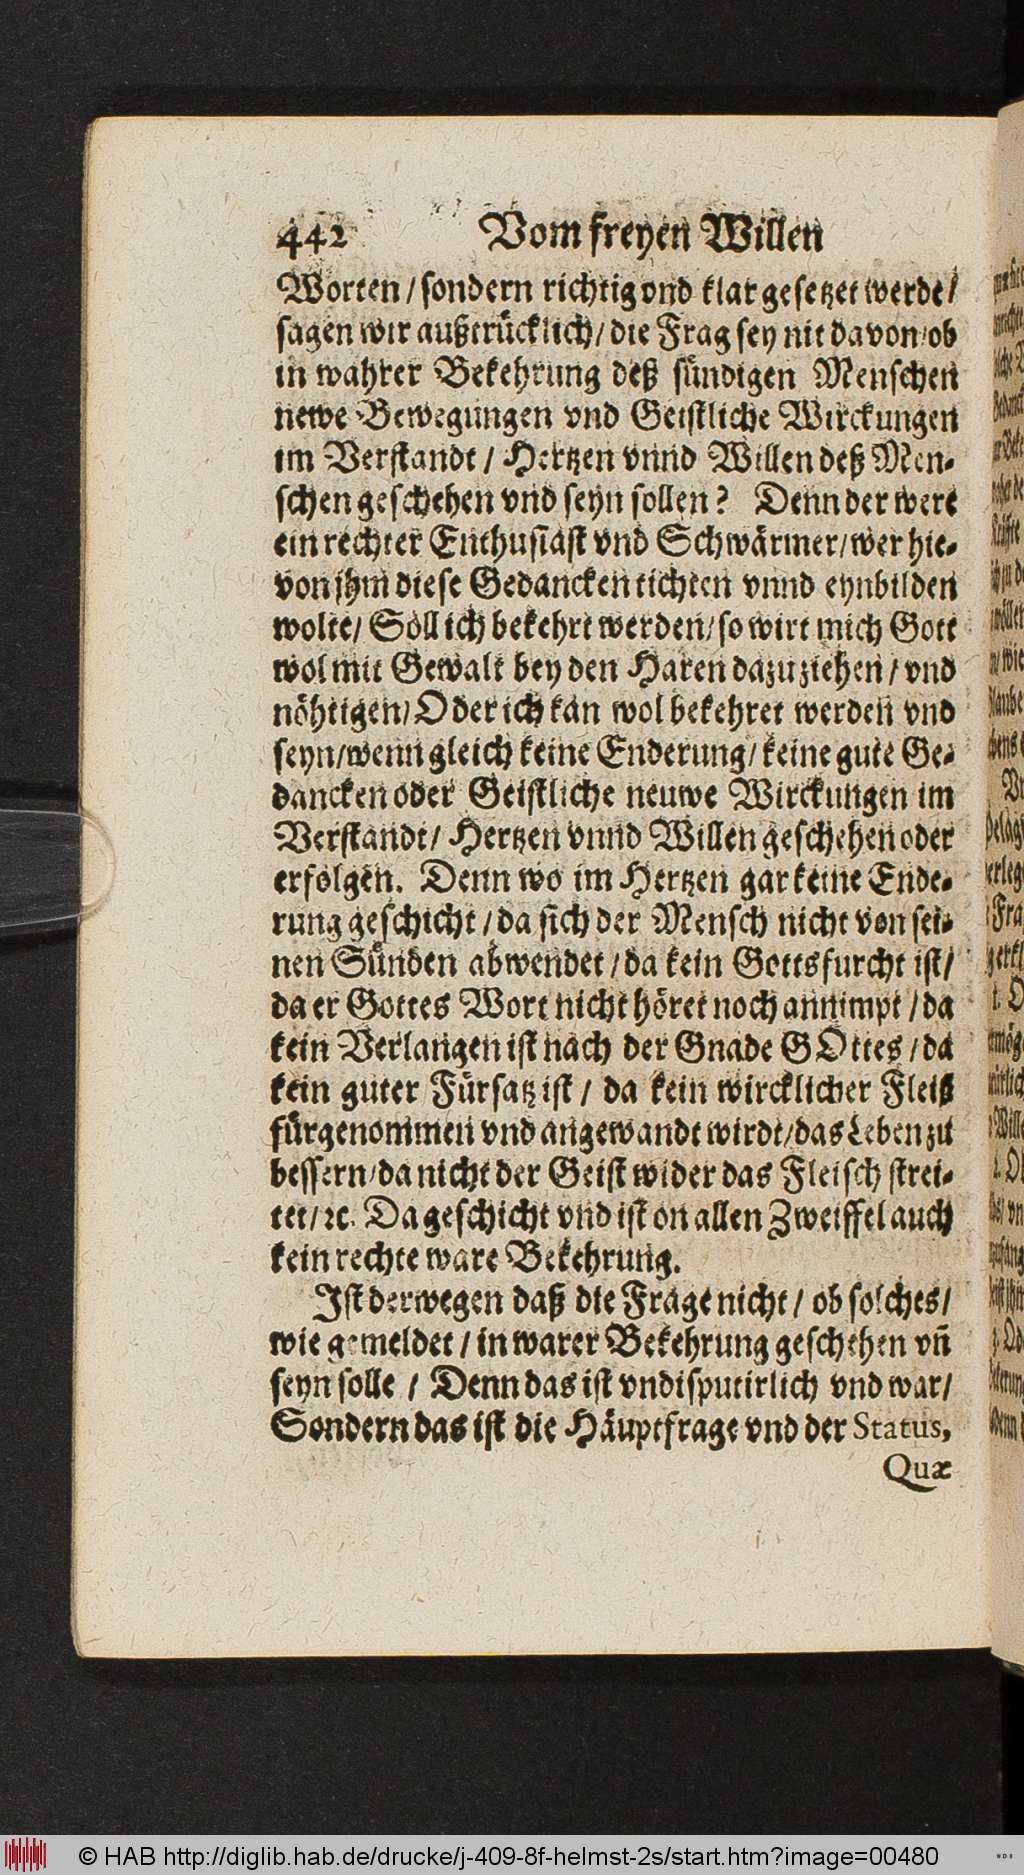 442 Vom freyen Willen
Worten / sondern richtig vnd klar gesetzet werde /
sagen wir außtrücklich / die Frag sey nit davon / ob
in wahrer Bekehrung deß sündigen Menschen
newe Bewegungen vnd Geistliche Wirckungen
im Verstandt / Hertzen vnnd Willen deß Men-
schen geschehen vnd seyn sollen? Denn der were
ein rechter Enthusiast vnd Schwärmer / wer hie-
von jhm diese Gedancken tichten vnnd eynbilden
wolte / Soll ich bekehrt werden / so wirt mich Gott
wol mit Gewalt bey den Haren dazu ziehen / vnd
nöhtigen / Oder ich kan wol bekehret werden vnd
seyn / wenn gleich keine Enderung / keine gute Ge-
dancken oder Geistliche neuwe Wirckungen im
Verstandt / Hertzen vnnd Willen geschehen oder
erfolgen. Denn wo im Hertzen gar keine Ende-
rung geschicht / da sich der Mensch nicht von sei-
nen Sünden abwendet / da kein Gottsfurcht ist /
da er Gottes Wort nicht höret noch annimpt / da
kein Verlangen ist nach der Gnade GOttes / da
kein guter Fürsatz ist / da kein wircklicher Fleiß
fürgenommen vnd angewandt wirdt / das Leben zu
bessern / da nicht der Geist wider das Fleisch strei-
tet / ꝛc. Da geschicht vnd ist on allen Zweiffel auch
kein rechte ware Bekehrung.
Ist derwegen daß die Frage nicht / ob solches /
wie gemeldet / in warer Bekehrung geschehen vn̄
seyn solle / Denn das ist vndisputirlich vnd war /
Sondern das ist die Häuptfrage vnd der Status,
Quæ
© HAB http://diglib.hab.de/drucke/j-409-8f-helmst-2s/start.htm?image=00480